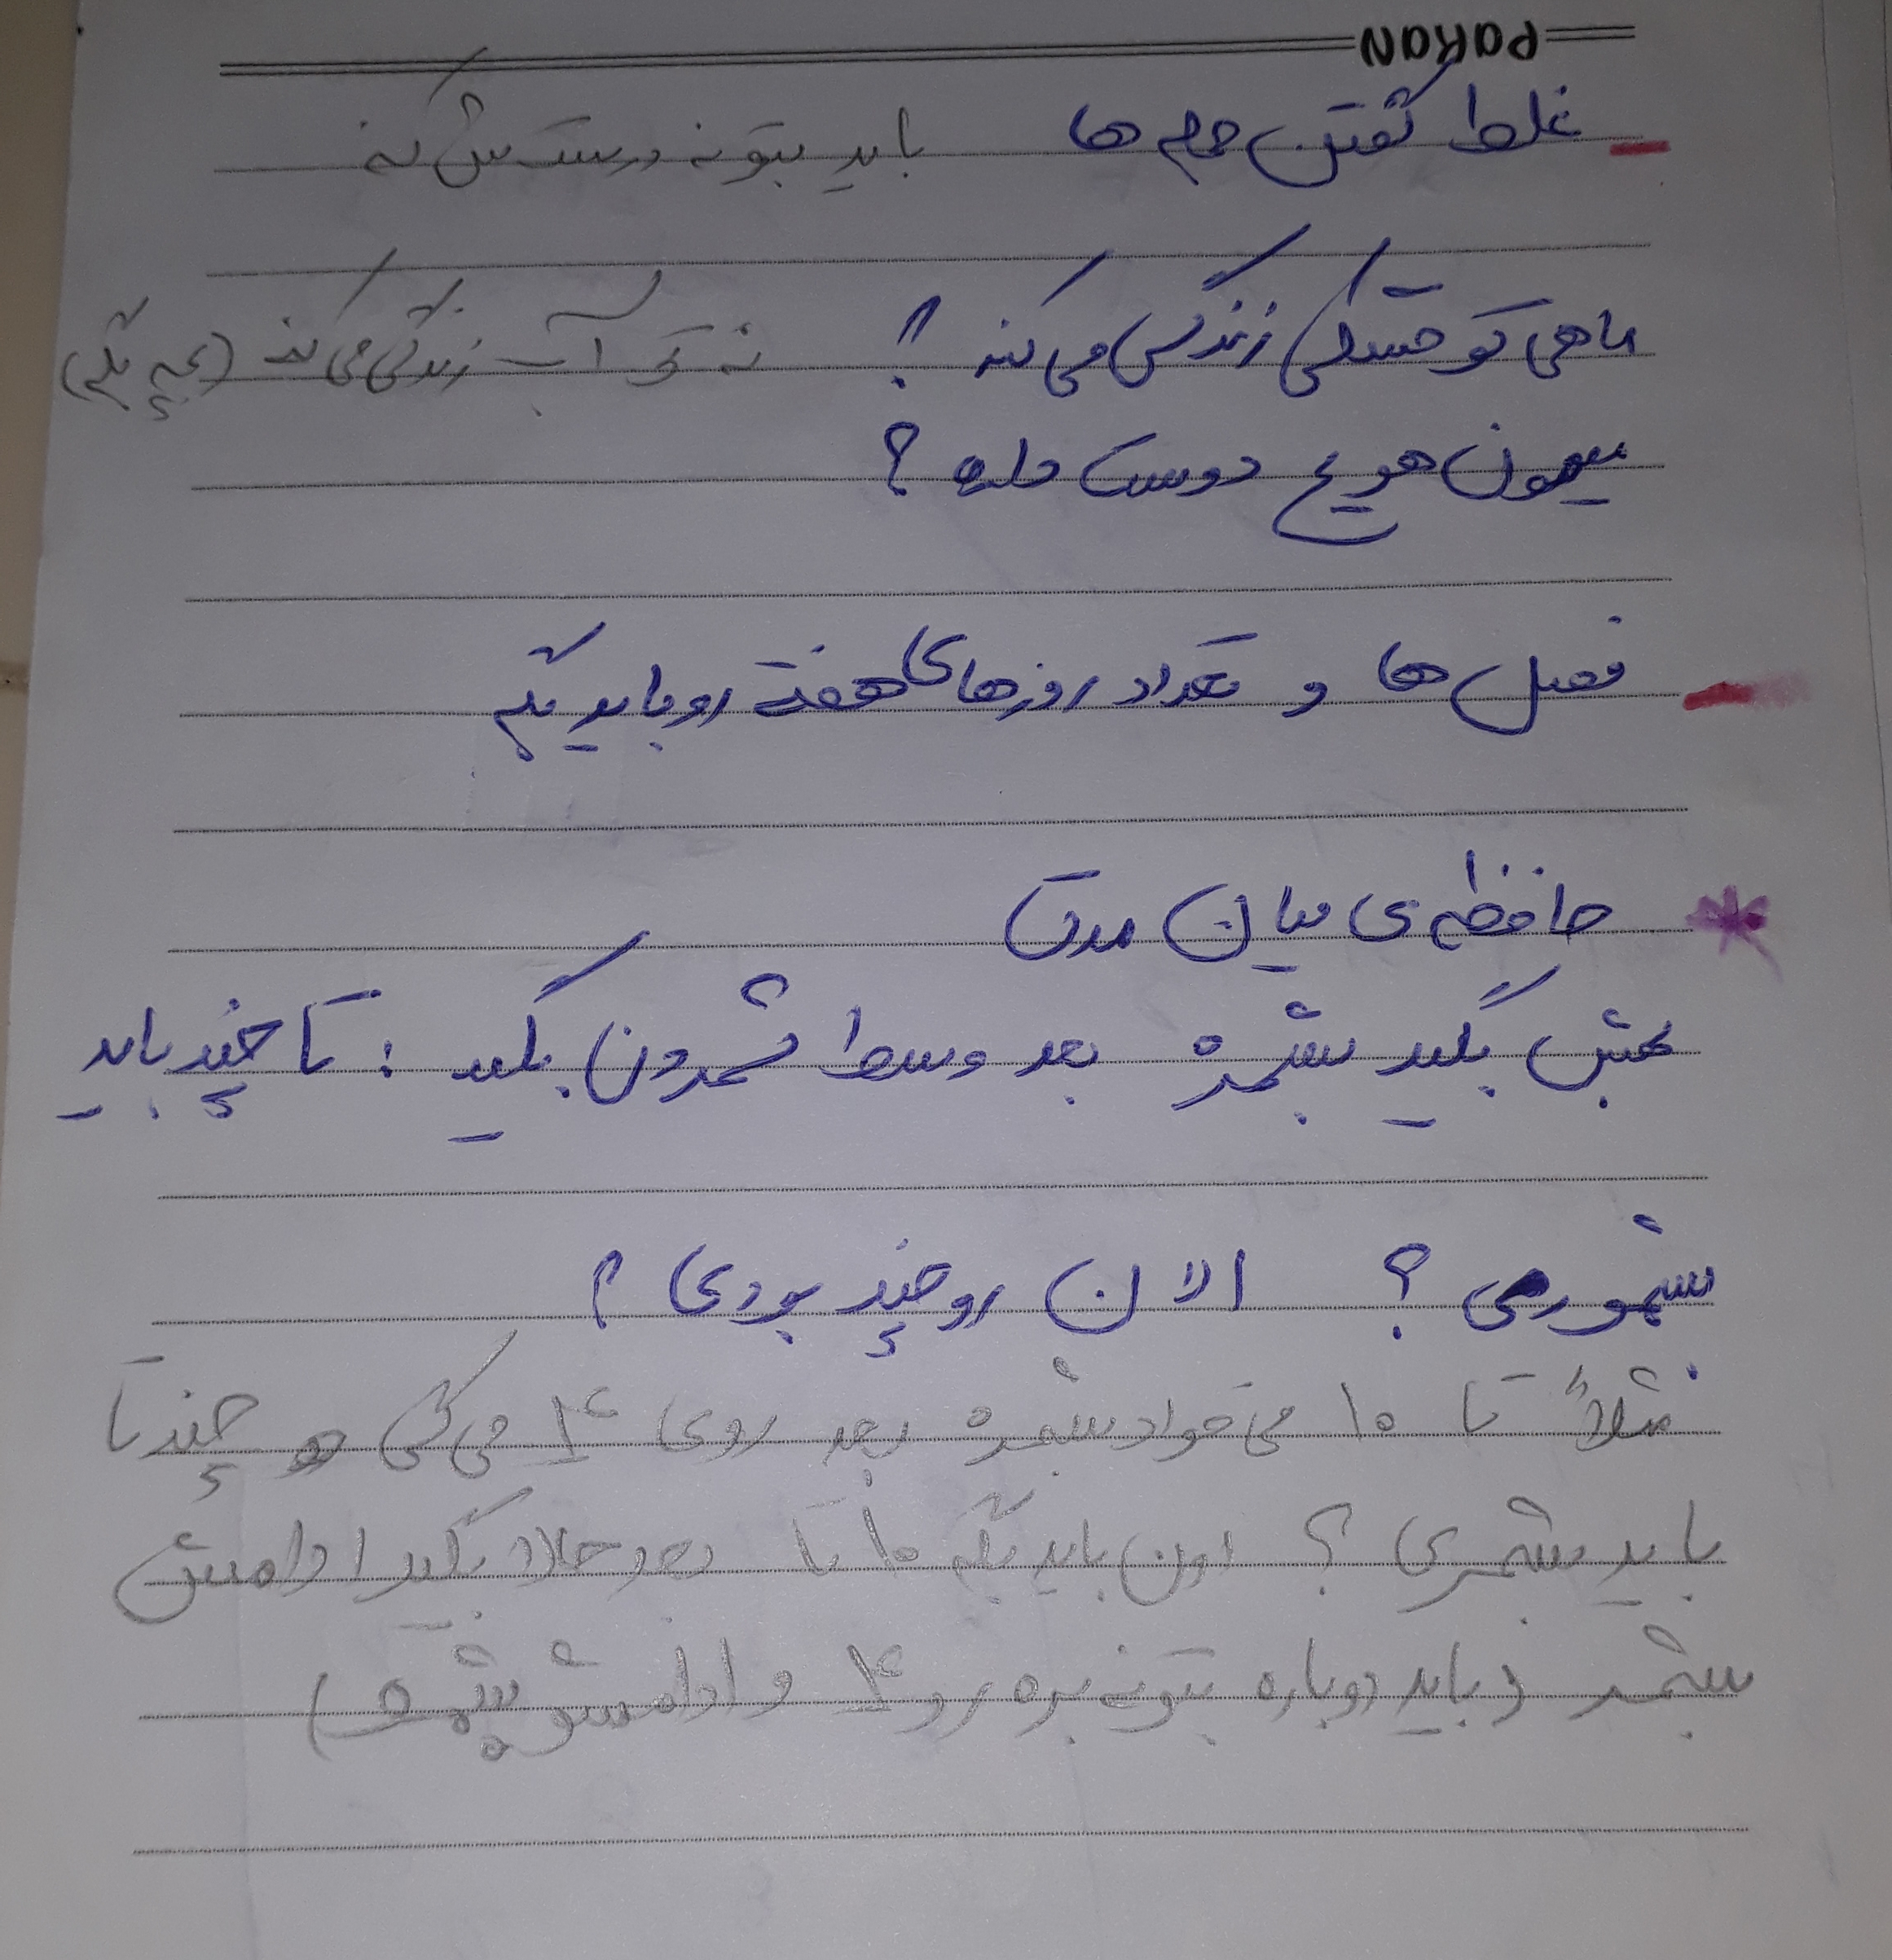 PARAN
غلط گفتن جمله ها باید بتونه درستش کنه
ماهی تو خشکی زندگی می کنه ؟ نه تو آب زندگی می کنه (بچه بگه)
میمون هویج دوست داره ؟
فصل ها و تعداد روزهای هفته رو باید بگه
* حافظه ی میان مدت
بهش بگید بشمره بعد وسط شمردن بگید : تا چند باید
بشموری ؟ الان رو چند بودی ؟
مثلاً تا ۱۰ می خواد بشمره بعد روی ۴ می گی چند تا
باید بشمری ؟ اون باید بگه ۱۰ تا بعد حالا بگید ادامش
بشمر (باید دوباره بتونه بره رو ۴ و ادامشو بشمره)